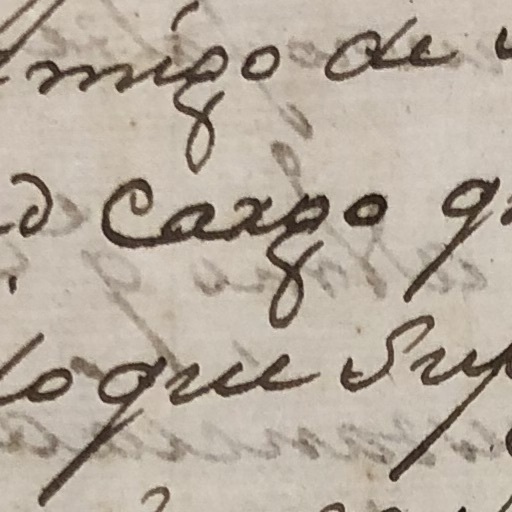 amigo de
d cargo q
lo que Sup